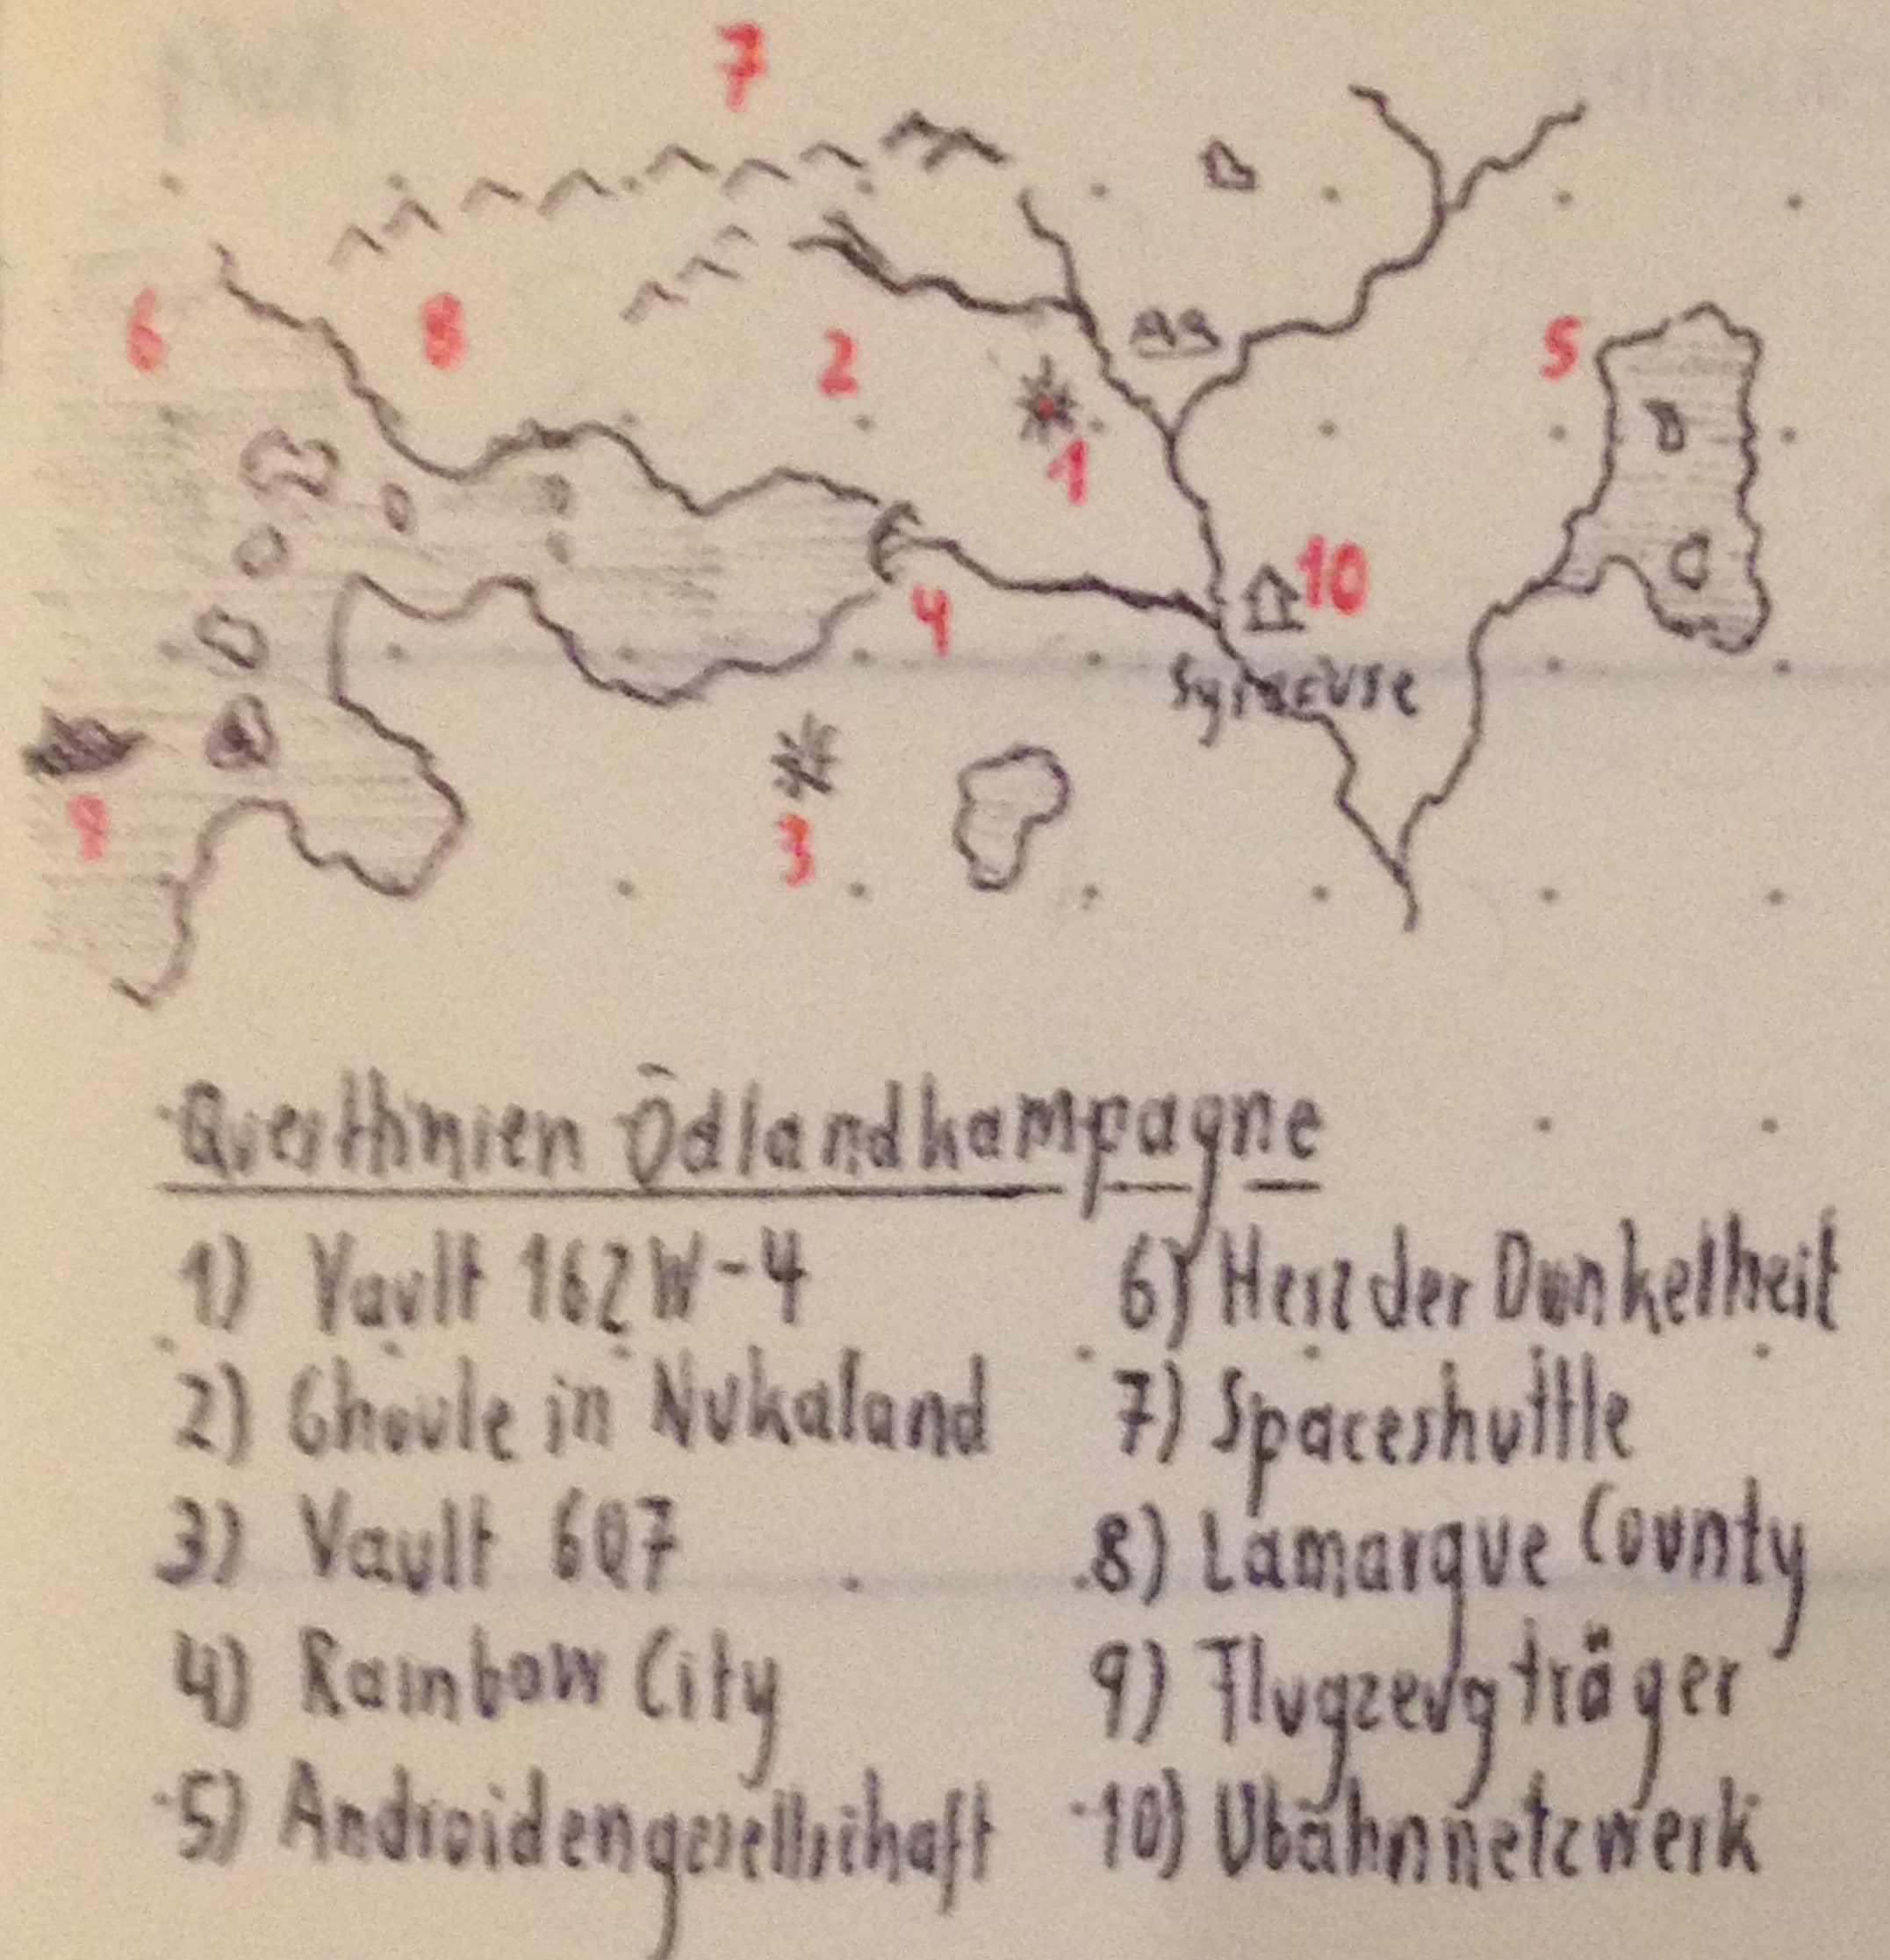 7
6
8
2
5
1
10
4
Syracuse
9
3
Questlinien Ödlandkampagne
1) Vault 162W-4
2) Ghoule in Nukaland
3) Vault 6Q7
4) Rainbow City
5) Androidengesellschaft
6) Herz der Dunkelheit
7) Spaceshuttle
8) Lamarque County
9) Flugzeugträger
10) Ubahnnetzwerk